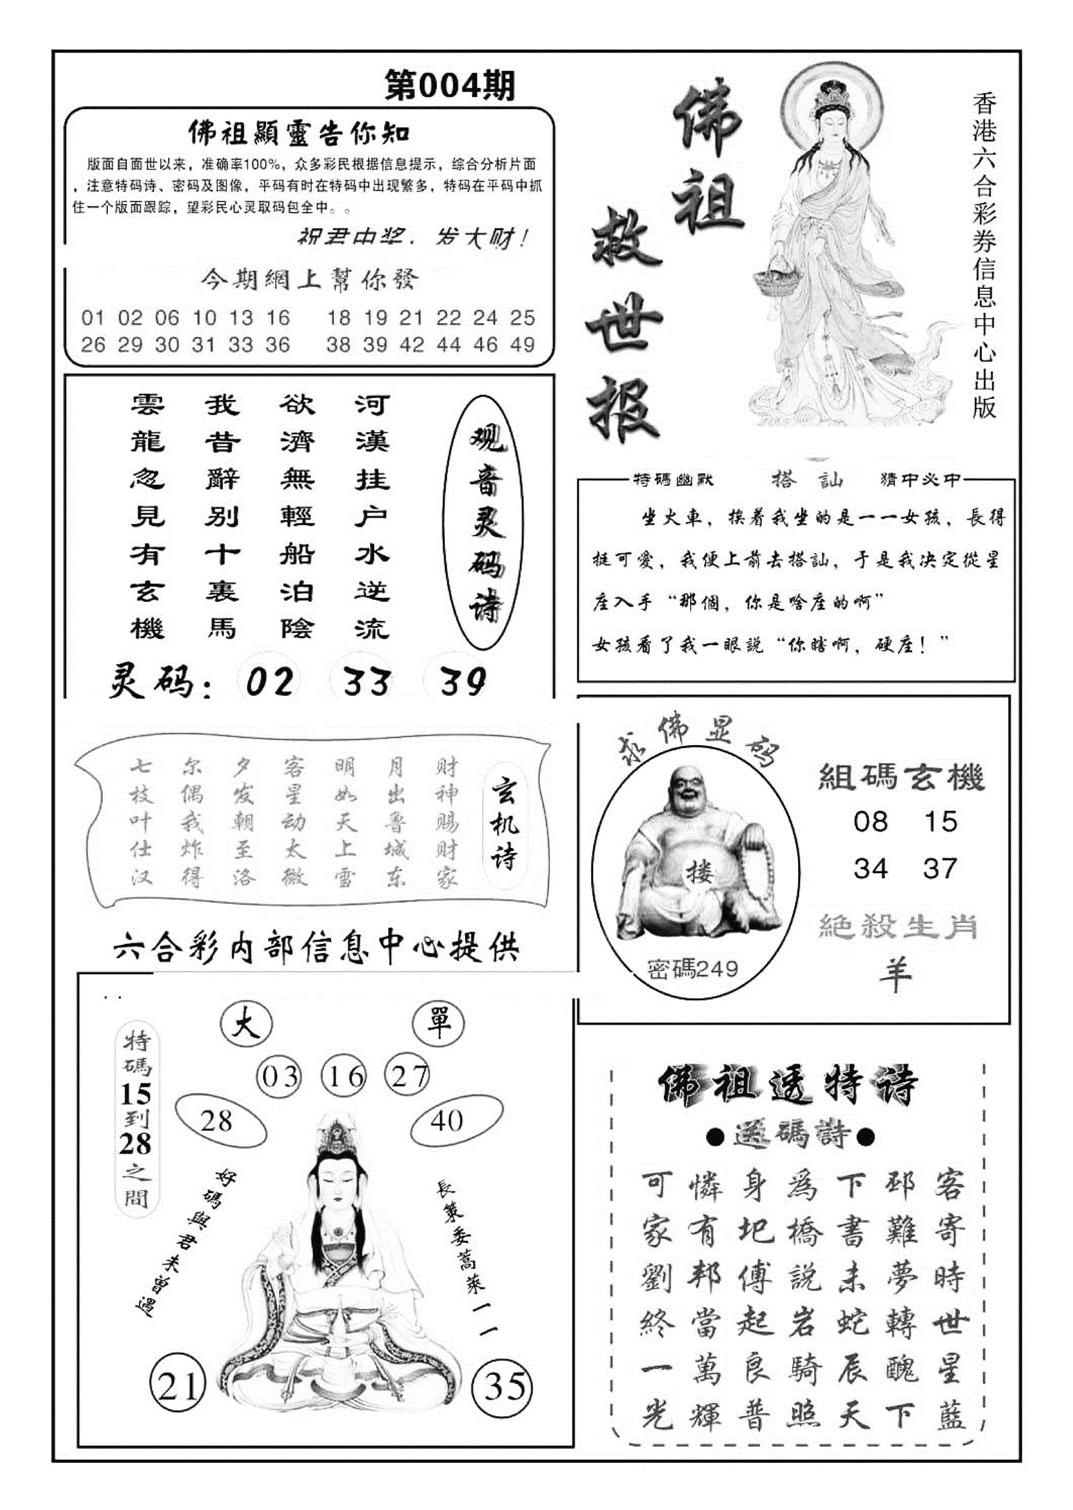 第004期
佛祖顯靈告你知
版面自面世以来，准确率100%，众多彩民根据信息提示，综合分析片面
，注意特码诗、密码及图像，平码有时在特码中出现繁多，特码在平码中抓
住一个版面跟踪，望彩民心灵取码包全中。。
祝君中奖，发大财！
今期網上幫你發
01 02 06 10 13 16 18 19 21 22 24 25
26 29 30 31 33 36 38 39 42 44 46 49
佛祖
救世报
香港六合彩券信息中心出版
观音灵码诗
河漢挂户水逆流
欲濟無輕船泊陰
我昔辭别十裏馬
雲龍忽見有玄機
灵码：02 33 39
特碼幽默 搭訕 猜中必中
坐火車，挨着我坐的是一一女孩，長得
挺可愛，我便上前去搭訕，于是我决定從星
座入手“那個，你是啥座的啊”
女孩看了我一眼説“你瞎啊，硬座！”
玄机诗
财神赐财家
月出鲁城东
明如天上雪
客星动太微
夕发朝至洛
尔偶我炸得
七枝叶仕汉
六合彩内部信息中心提供
求佛显码
搂
密碼249
組碼玄機
08 15
34 37
絕殺生肖
羊
特碼15到28之間
大 單
03 16 27
28 40
好碼與君未曾遇
長策委蒿萊一一
21 35
佛祖透特诗
●送碼詩●
客寄時世星藍
邳難夢轉醜下
下書未蛇辰天
爲橋説岩騎照
身圯傅起良普
憐有邦當萬輝
可家劉終一光